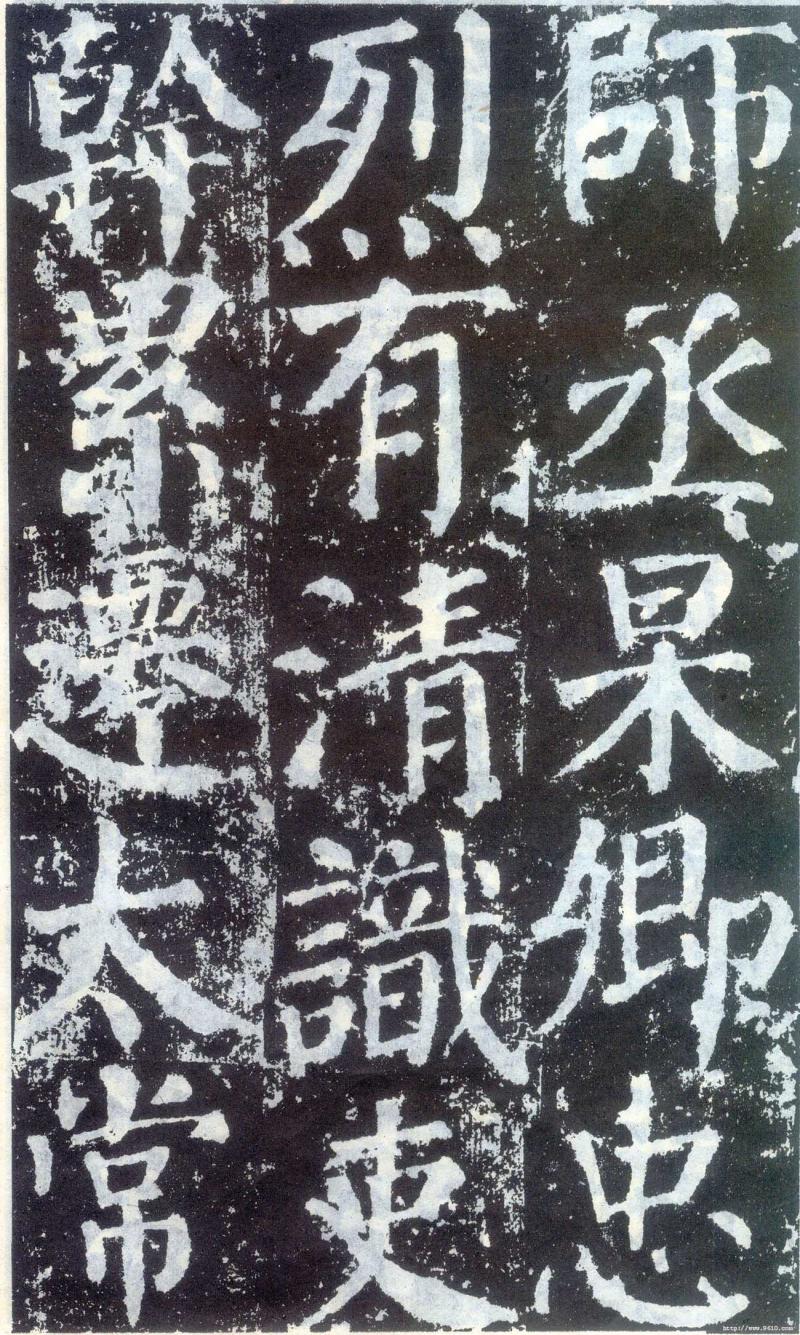 師丞杲卿忠
烈有清識吏
幹累遷太常
http://www.9610.com